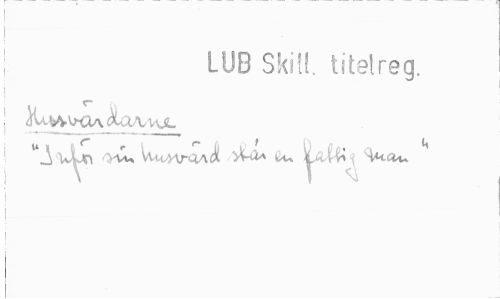 LUB Skill. titelreg.
Husvärdarne
"Inför sin husvärd står en fattig man"